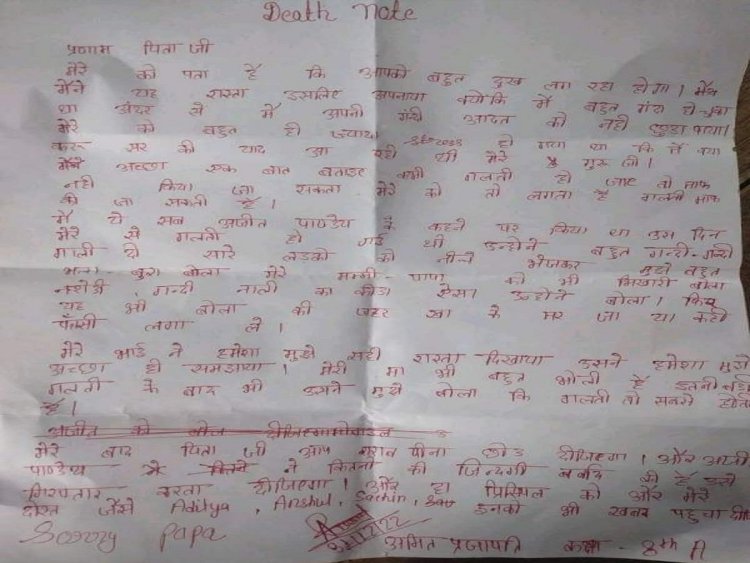 Death Note
प्रणाम पिता जी
मेरे को पता है कि आपको बहुत दुख लग रहा होगा। मैंने
मैंने यह रास्ता इसलिए अपनाया क्योकि मैं बहुत गंदा हो चुका
था अंदर से मैं अपनी गंदी आदत को नही छुड़ा पाया।
मेरे को बहुत ही ज्यादा हो गया था कि मैं क्या
करू सर की याद आ रही थी मेरे गुरू जी।
मैंने अच्छा एक बात बताइए कभी गलती हो जाए तो माफ
नही किया जा सकता मेरे को तो लगता है गलती माफ
की जा सकती है।
मैं ये सब अजीत पाण्डेय के कहने पर किया था उस दिन
मेरे से गलती हो गई थी उन्होने बहुत गन्दी-गन्दी
गाली दी सारे लडको को नीचे भेजकर मुझे बहुत
भला-बुरा बोला मेरे मम्मी-पापा को भी भिखारी बोला
गन्दी नाली का कीडा ऐसा उन्होने बोला। फिर
यह भी बोला की जहर खा के मर जा या कही
फाँसी लगा ले।
मेरे भाई ने हमेशा मुझे सही रास्ता दिखाया उसने हमेशा मुझे
अच्छा ही समझाया। मेरी मा भी बहुत भोली है इतनी बड़ी
गलती के बाद भी उसने मुझे बोला कि गलती तो सबसे होती
है।
अजीत को बोल
मेरे बाद पिता जी आप शराब पीना छोड दीजिएगा। और अजीत
पाण्डेय ने कितनो की जिन्दगी बर्बाद की है उसे
गिरफ्तार करवा दीजिएगा। और हा प्रिंसिपल को और मेरे
दोस्त जैसे Aditya, Anshul, Sachin, इनको भी खबर पहुचा
Soorry Papa
अमित प्रजापति कक्षा - 8th A